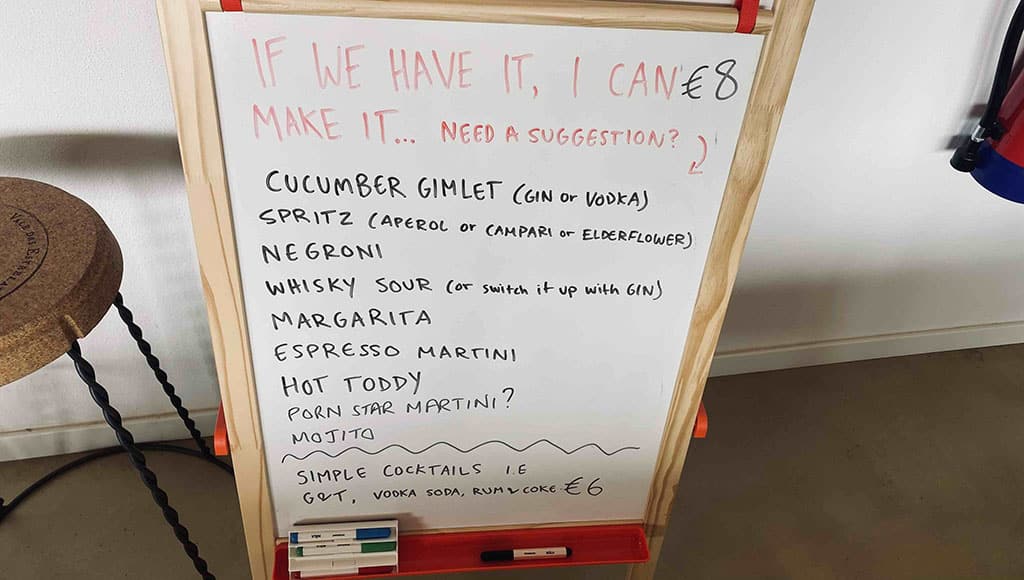 IF WE HAVE IT, I CAN €8
MAKE IT... NEED A SUGGESTION?
CUCUMBER GIMLET (GIN or VODKA)
SPRITZ (APEROL or CAMPARI or ELDERFLOWER)
NEGRONI
WHISKY SOUR (or switch it up with GIN)
MARGARITA
ESPRESSO MARTINI
HOT TODDY
PORN STAR MARTINI?
MOJITO
SIMPLE COCKTAILS I.E
G&T, VODKA SODA, RUM & COKE €6